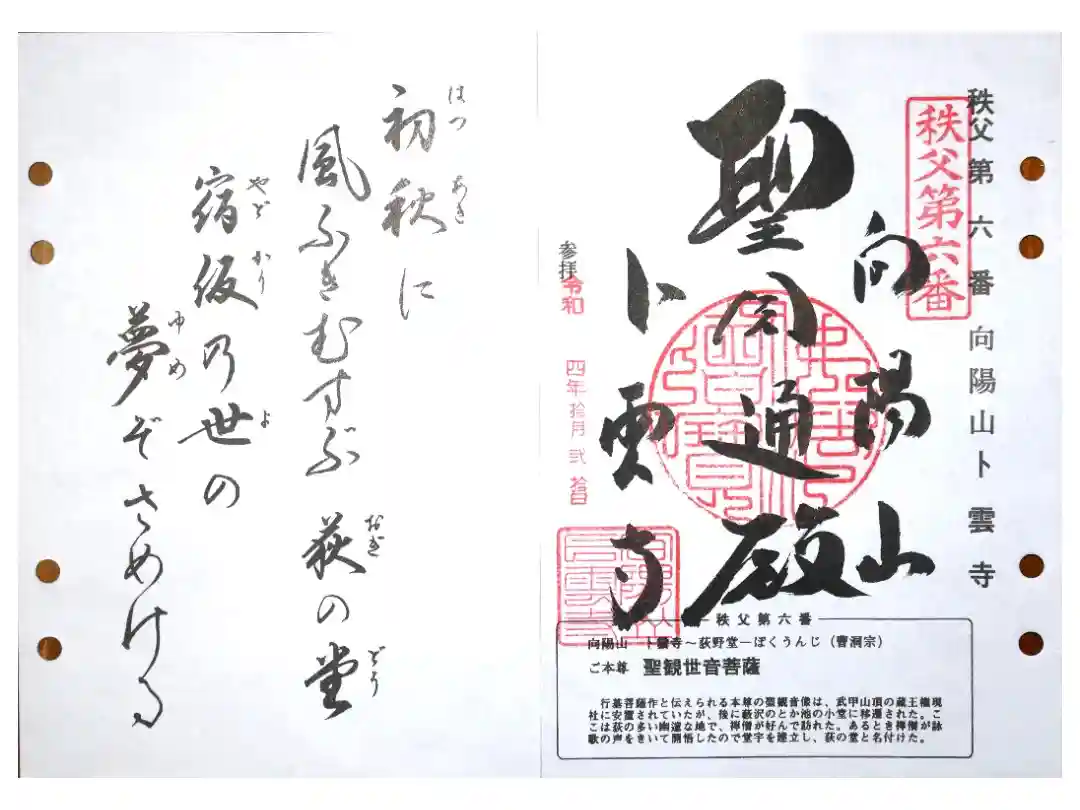 秩父第六番 向陽山卜雲寺
秩父第六番
向陽山
聖円通殿
卜雲寺
参拝 令和 四年拾月弐拾四日
秩父第六番
向陽山 卜雲寺~荻野堂―ぼくうんじ(曹洞宗)
ご本尊 聖観世音菩薩
行基菩薩作と伝えられる本尊の聖観音像は、武甲山頂の蔵王権現
社に安置されていたが、後に藪沢のとか池の小堂に移遷された。こ
こは荻の多い幽邃な地で、禅僧が好んで訪れた。あるとき禅僧が詠
歌の声をきいて開悟したので堂宇を建立し、荻の堂と名付けた。
はつ あき
初秋に
風ふきむすぶ 荻の堂
おぎ どう
やど かり よ
宿仮乃世の
ゆめ
夢ぞさめける